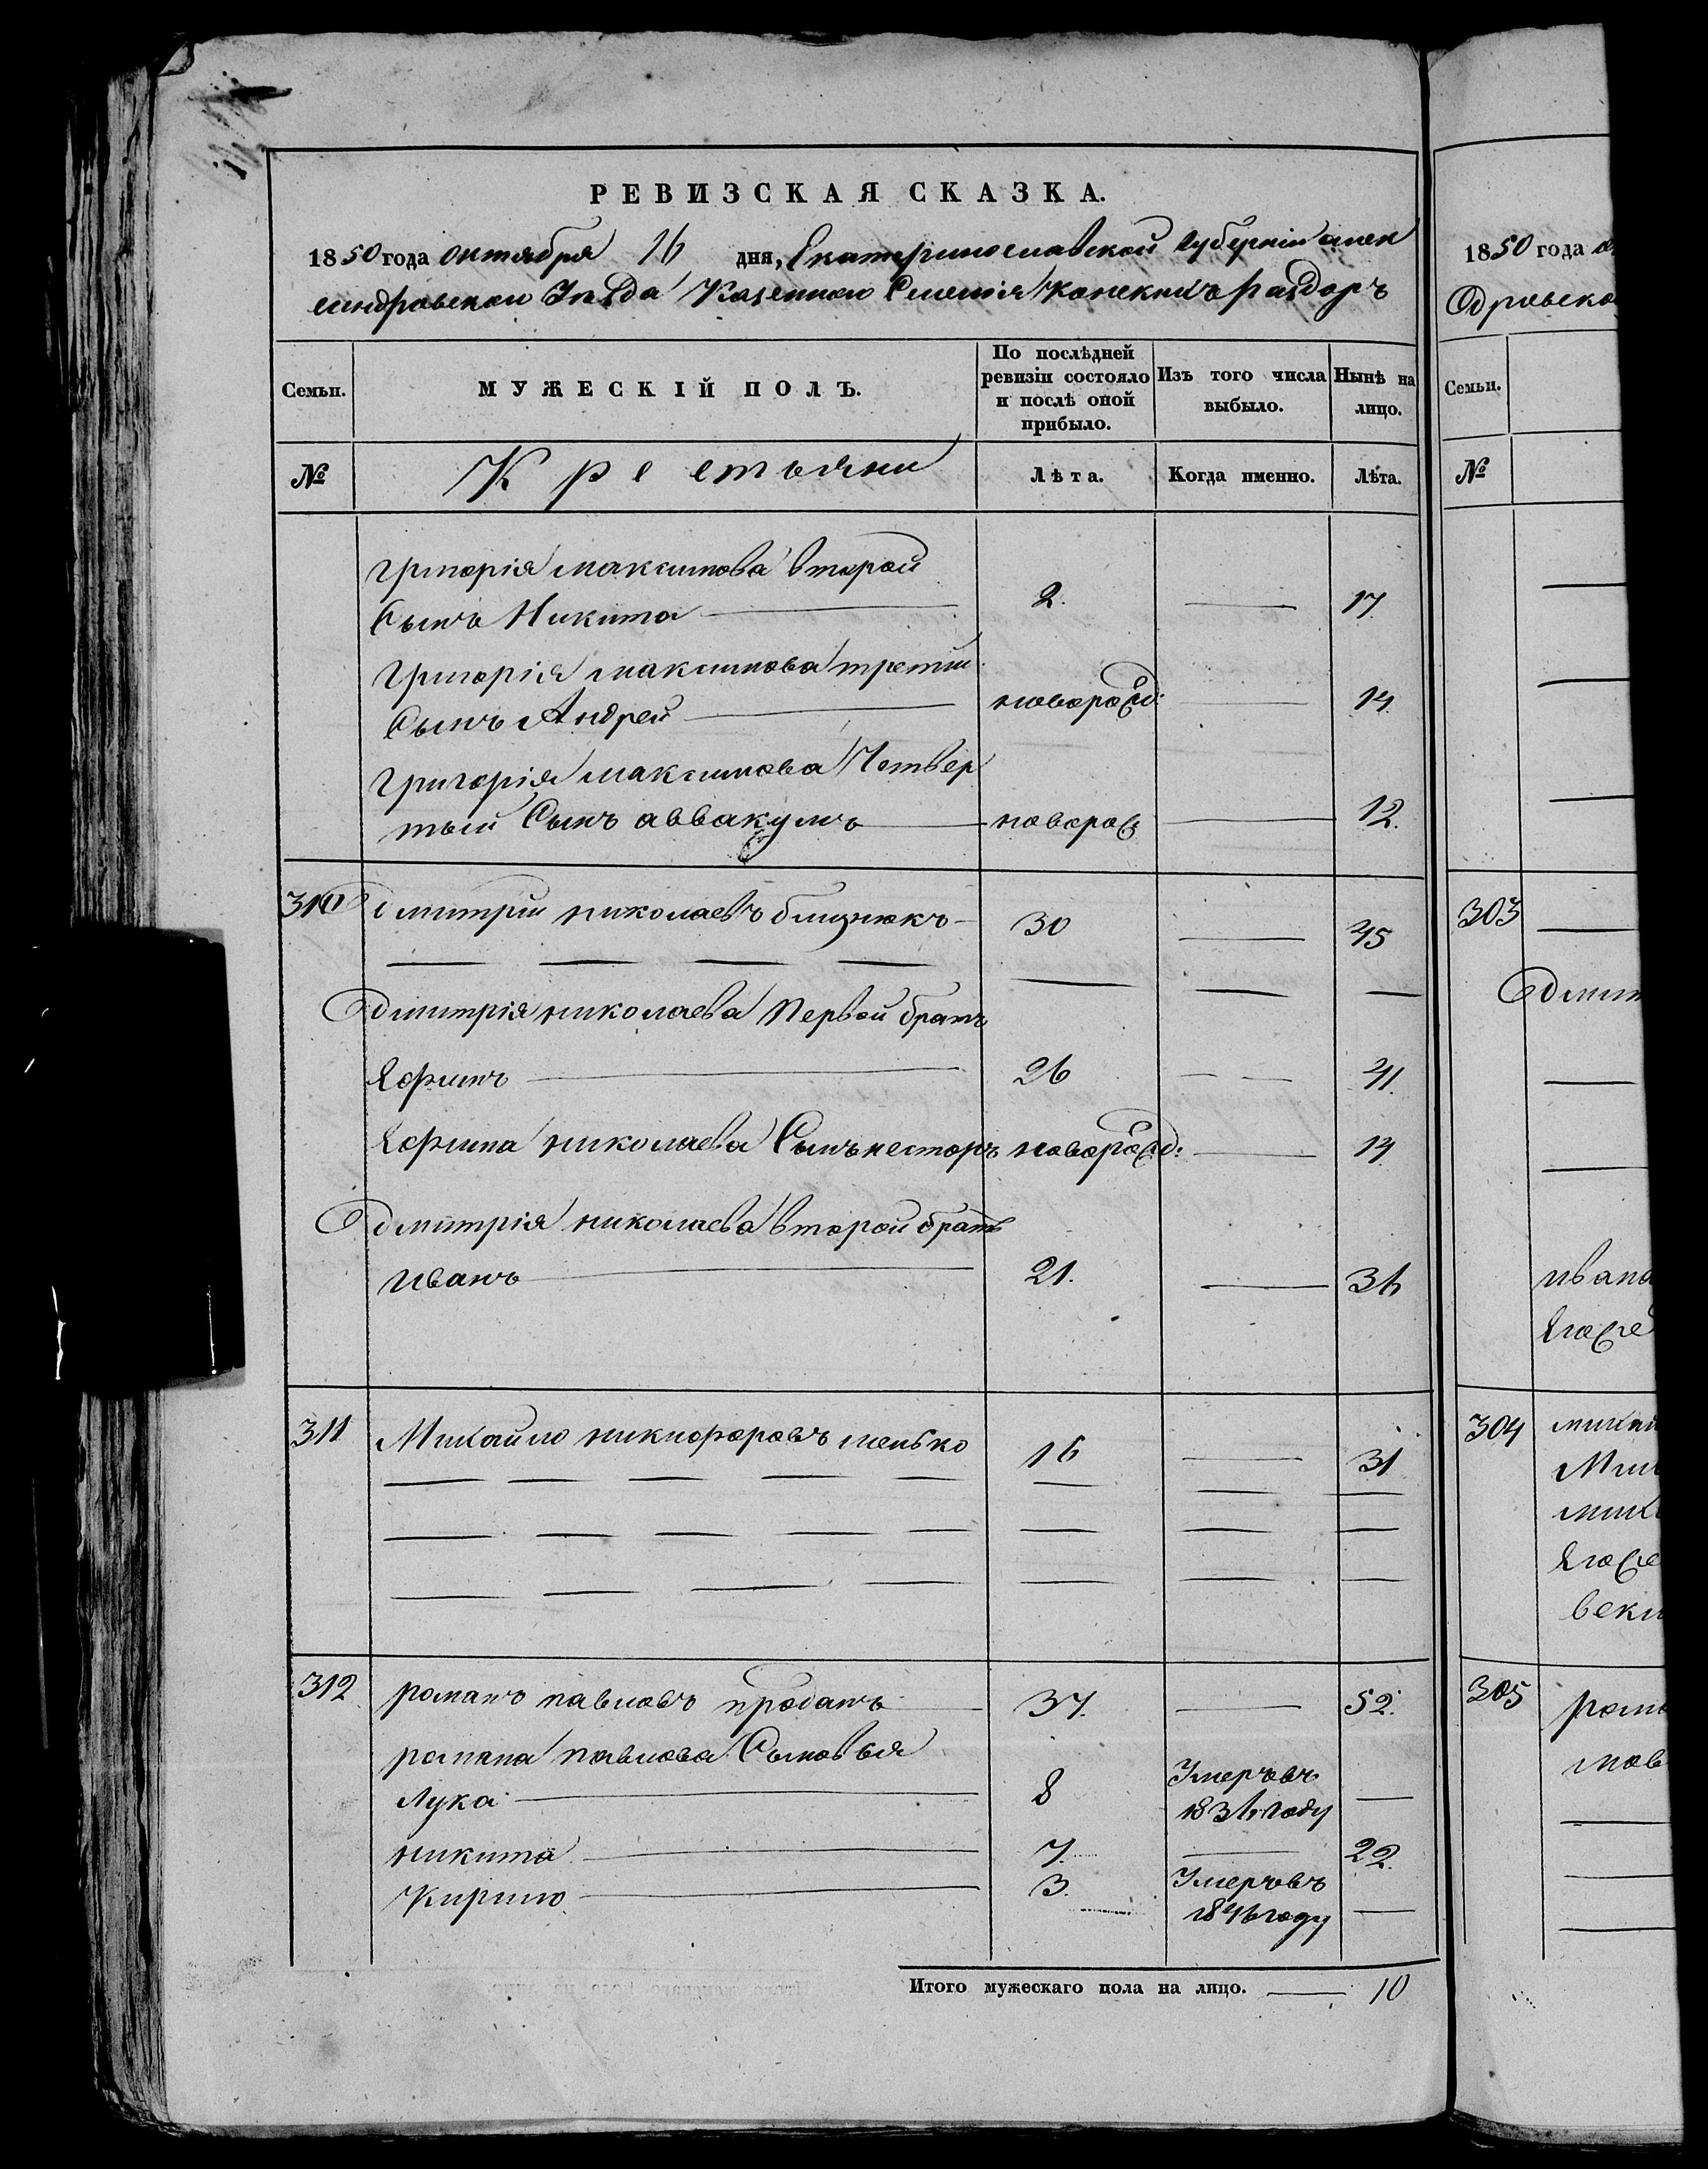 РЕВИЗСКАЯ СКАЗКА.
1850 года октября 16 дня, Екатеринославской губернiи алек
сандровскаго Уѣзда Казеннаго Селенiя Конскихъ раздоръ
Семьи.
МУЖЕСКІЙ ПОЛЪ.
По послѣдней ревизіи состояло и послѣ оной прибыло.
Изъ того числа выбыло.
Нынѣ на лицо.
№
Крестьяни
Лѣта.
Когда именно.
Лѣта.
григорiя максимова второй
Сынъ Никита 2. 17.
григорiя максимова третiй
Сынъ Андрей новорожд: 14.
григорiя максимова Четвер
тый Сынъ аввакумъ новорож 12.
310 дмитрiй николаевъ близнюкъ 30 45
дмитрiя николаева Первой братъ
Ефимъ 26 41.
Ефима николаева Сынъ несторъ новорожд: 14
дмитрiя николаева второй братъ
иванъ 21. 36
311 Михайло никифоровъ 16 31
312 романъ павловъ проданъ 37. 52.
романа павлова Сыновья
Лука 8 Умеръ въ
1836 году
никита 7. 22.
Кирило 3. Умеръ въ
1846 году
Итого мужескаго пола на лицо. 10
1850 года
Семьи.
№
303
304
305